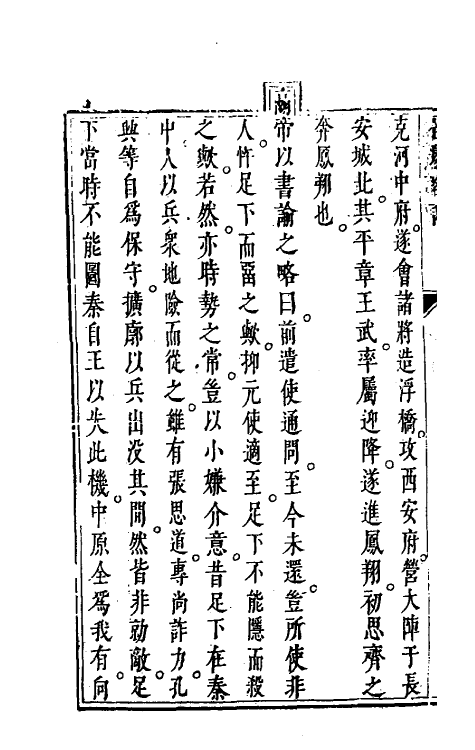 克河中府遂會諸將造浮橋攻西安府營大陣于長
安城北其平章王武率屬迎降遂進鳳翔初思齊之
奔鳳翔也
帝以書諭之略曰前遣使通問至今未還豈所使非
人忤足下而畱之歟抑元使適至足下不能隱而殺
之歟若然亦時勢之常豈以小嫌介意昔足下在秦
中人以兵衆地險而從之雖有張思道專尚詐力孔
興等自爲保守擴廓以兵出没其間然皆非勍敵足
下當時不能圖秦自王以失此機中原全爲我有向